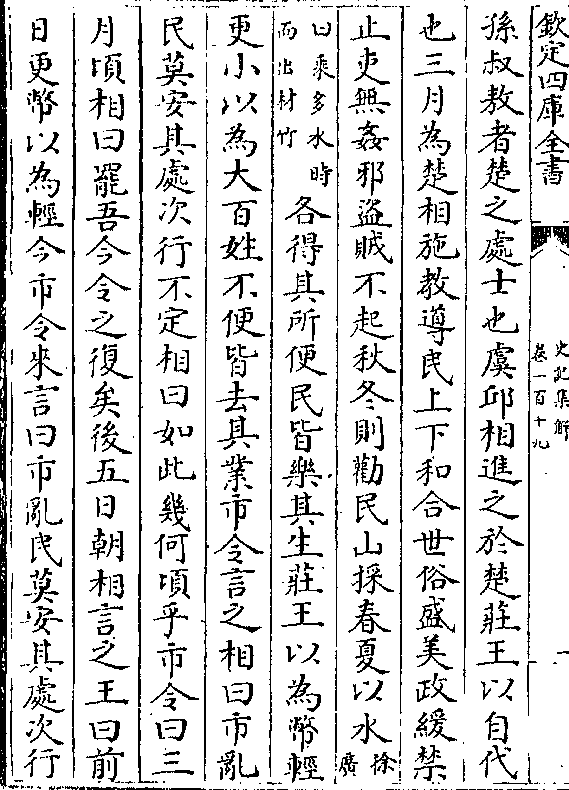 欽定四庫全書
史記集解
卷一百十九
一
孫叔敖者楚之處士也虞邱相進之於楚莊王以自代
也三月為楚相施教導民上下和合世俗盛美政緩禁
止吏無姦邪盜賊不起秋冬則勸民山採春夏以水徐廣
曰乘多水時而出材竹各得其所便民皆樂其生莊王以為幣輕
更小以為大百姓不便皆去其業市令言之相曰市亂
民莫安其處次行不定相曰如此幾何頃乎市令曰三
月頃相曰罷吾今令之復矣後五日朝相言之王曰前
日更幣以為輕今市令來言曰市亂民莫安其處次行